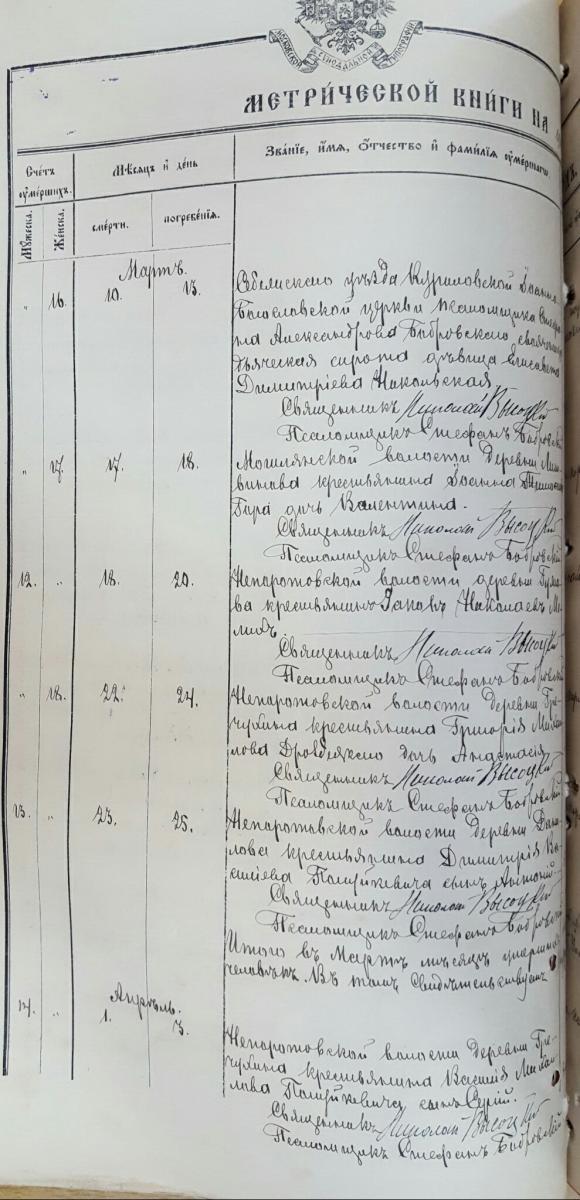 МОСКОВСКОЙ СѴНОДАЛЬНОЙ ТИПОГРАФІИ
МЕТРИ́ЧЕСКОЙ КНИ́ГИ НА
Сче́тъ оу҆ме́ршихъ.
Мѣ́сѧцъ и҆ де́нь
Зва́нїе, и҆́мѧ, ѻ҆́тчество и҆ фами́лїѧ оу҆ме́ршагѡ
Мꙋ́жеска.
Же́нска.
сме́рти.
погребе́нїѧ.
Мартъ.
" 16. 10. 13. Себежскаго уѣзда Куриловской Іоанно
Богословской церкви псаломщика Стефа
на Александрова Бобровскаго
сирота дѣвица Елисавета
Димитріева Никольская
Священникъ Николай Высоцкій
Псаломщикъ Стефанъ Бобровскій
" 17. 17. 18. волости деревни
крестьянина Іоанна
дочь Валентина.
Священникъ Николай Высоцкій
Псаломщикъ Стефанъ Бобровскій
12. " 18. 20. Непоротовской волости деревни
ва крестьянинъ Іаковъ Николаевъ

Священникъ Николай Высоцкій
Псаломщикъ Стефанъ Бобровскій
" 18. 22. 24. Непоротовской волости деревни Гре-
чухина крестьянина Григорія Михаи
лова дочь Анастасія
Священникъ Николай Высоцкій
Псаломщикъ Стефанъ Бобровскій
13. " 23. 25. Непоротовской волости деревни Дани
лова крестьянина Димитрія Ва
силіева сынъ Антоній
Священникъ Николай Высоцкій
Псаломщикъ Стефанъ Бобровскій
Итого въ Мартѣ мѣсяцѣ умерших
человѣкъ. Въ томъ свидѣтельствуемъ
Апрѣль.
14. " 1. 3. Непоротовской волости деревни Гре-
чухина крестьянина Василія Михаи
лова сынъ Сергій.
Священникъ Николай Высоцкій
Псаломщикъ Стефанъ Бобровскій